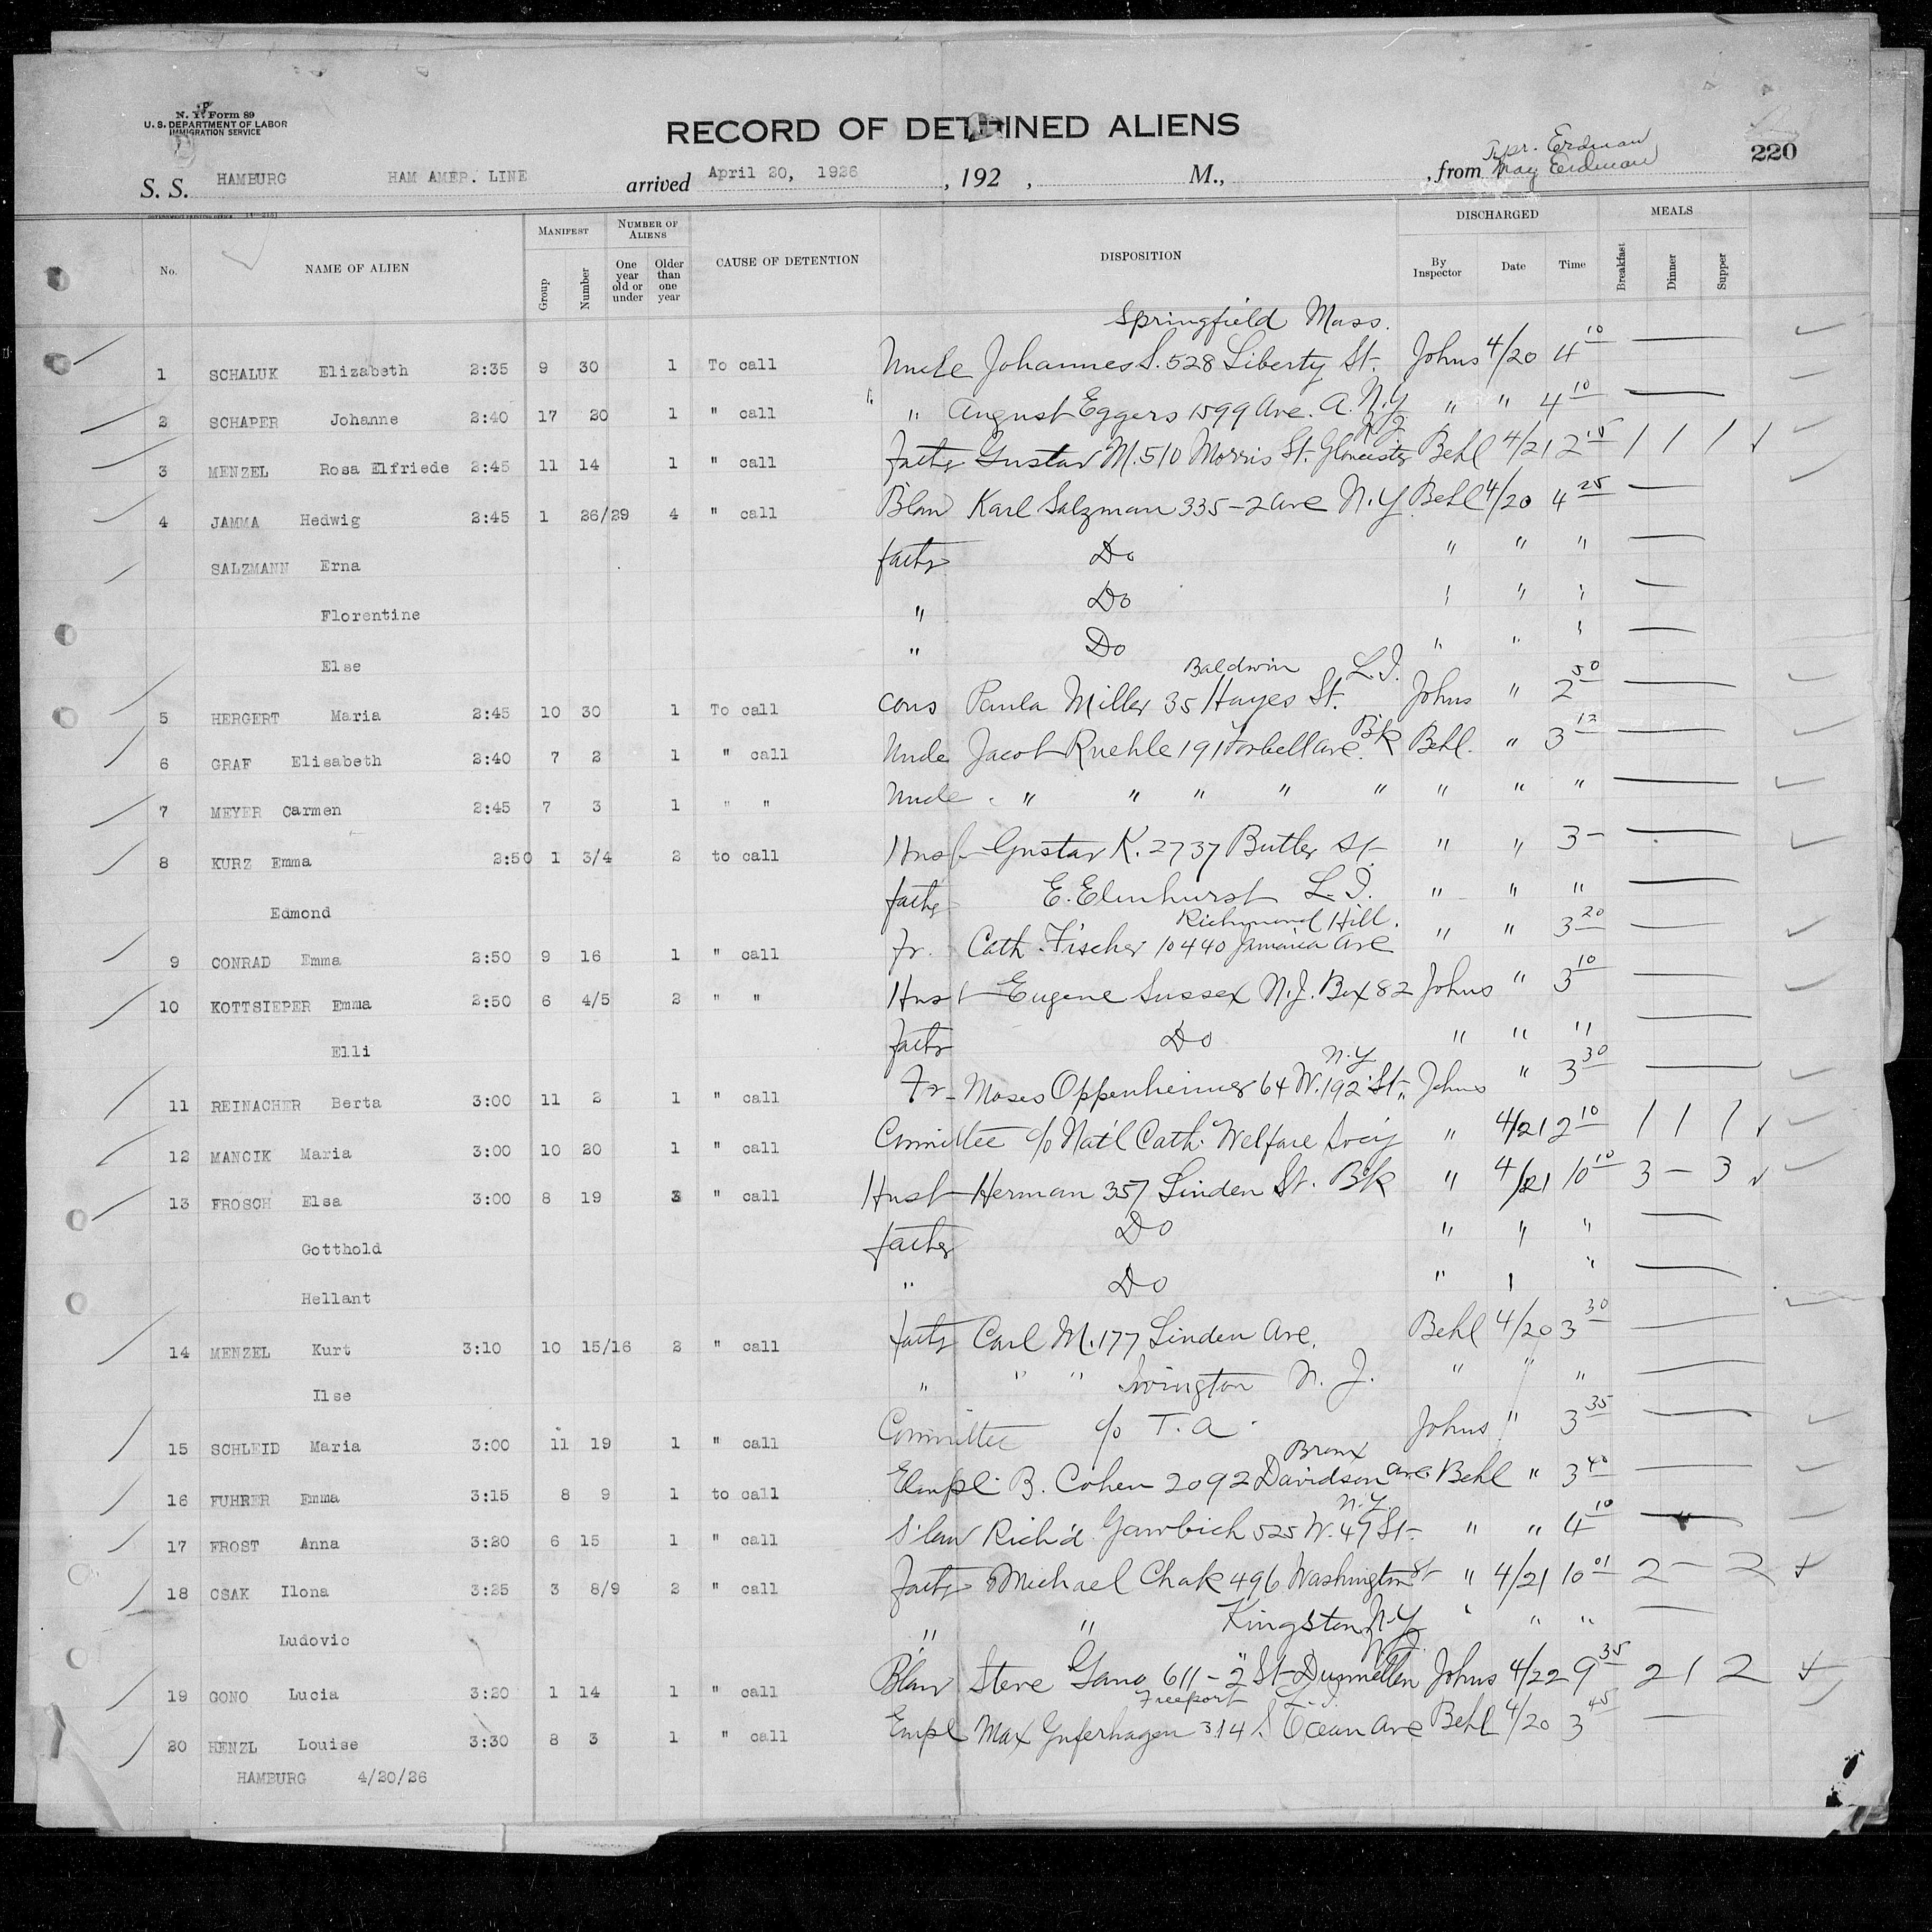 N. Y. Form 89
U. S. DEPARTMENT OF LABOR
IMMIGRATION SERVICE
RECORD OF DETAINED ALIENS
220
S. S. HAMBURG HAM AMER. LINE arrived April 20, 1926, 192 , M., , from Erdman
May Erdman
No. NAME OF ALIEN MANIFEST Group Number NUMBER OF ALIENS One year old or under Older than one year CAUSE OF DETENTION DISPOSITION DISCHARGED By Inspector Date Time MEALS Breakfast Dinner Supper
Springfield Mass.
1 SCHALUK Elizabeth 2:35 9 30 1 To call Uncle Johannes S. 528 Liberty St. Johns 4/20 4 10
2 SCHAPER Johanne 2:40 17 20 1 " call " August Eggers 1599 Ave. A. N.Y " " 4 10
N.J.
3 MENZEL Rosa Elfriede 2:45 11 14 1 " call Fathr Gustav M. 510 Morris St. Gloucister Behl 4/21 2 15 1 1 1
4 JAMMA Hedwig 2:45 1 26/29 4 " call B'law Karl Salzman 335-2 Ave N.Y. Behl 4/20 4 25
SALZMANN Erna fathr Do " " "
Florentine " Do " " "
Else " Do " " "
Baldwin L.I.
5 HERGERT Maria 2:45 10 30 1 To call Cous Paula Miller 35 Hayes St. Johns " 2 50
6 GRAF Elisabeth 2:40 7 2 1 " call Uncle Jacob Ruehle 191 Forbell Ave. B'k Behl. " 3 12
7 MEYER Carmen 2:45 7 3 1 " " Uncle " " " " " " " "
8 KURZ Emma 2:50 1 3/4 2 to call Husb Gustav K. 2737 Butler St " " 3 -
Edmond fathr E. Elmhurst L.I. " " "
Richmond Hill.
9 CONRAD Emma 2:50 9 16 1 " call Fr. Cath. Fischer 10440 Jamaica Ave " " 3 20
10 KOTTSIEPER Emma 2:50 6 4/5 2 " " Husb Eugene Sussex N.J. Box 82 Johns " 3 10
Elli fathr Do " " "
N.Y
11 REINACHER Berta 3:00 11 2 1 " call Fr. Moses Oppenheimer 64 W. 192 St. Johns " 3 30
12 MANCIK Maria 3:00 10 20 1 " call Committee c/o Nat'l Cath. Welfare Soc'y " 4/21 2 10 1 1 1
13 FROSCH Elsa 3:00 8 19 3 " call Husb Herman 357 Linden St. B'k " 4/21 10 10 3 - 3
Gotthold father Do " " "
Hellant " Do " " "
14 MENZEL Kurt 3:10 10 15/16 2 " call fathr Carl M. 177 Linden Ave. Behl 4/20 3 30
Ilse " " " Irvington N. J. " " "
15 SCHLEID Maria 3:00 11 19 1 " call Committee c/o T. A. Johns " 3 35
Bronx
16 FUHRER Emma 3:15 8 9 1 to call Empl. B. Cohen 2092 Davidson Ave. Behl " 3 40
N.Y.
17 FROST Anna 3:20 6 15 1 " call S'law Rich'd 525 W. 47 St. " " 4 10
18 CSAK Ilona 3:25 3 8/9 2 " call fathr Michael Chak 496 Washington St " 4/21 10 01 2 - 2
Ludovic " " Kingston N.Y " " "
N.J.
19 GONO Lucia 3:20 1 14 1 " call B'law Steve Gano 611-2" St Dunnellen Johns 4/22 9 35 2 1 2
Freeport L.I.
20 HENZL Louise 3:30 8 3 1 " call Empl Max 314 S Ocean Ave Behl 4/20 3 45
HAMBURG 4/20/26